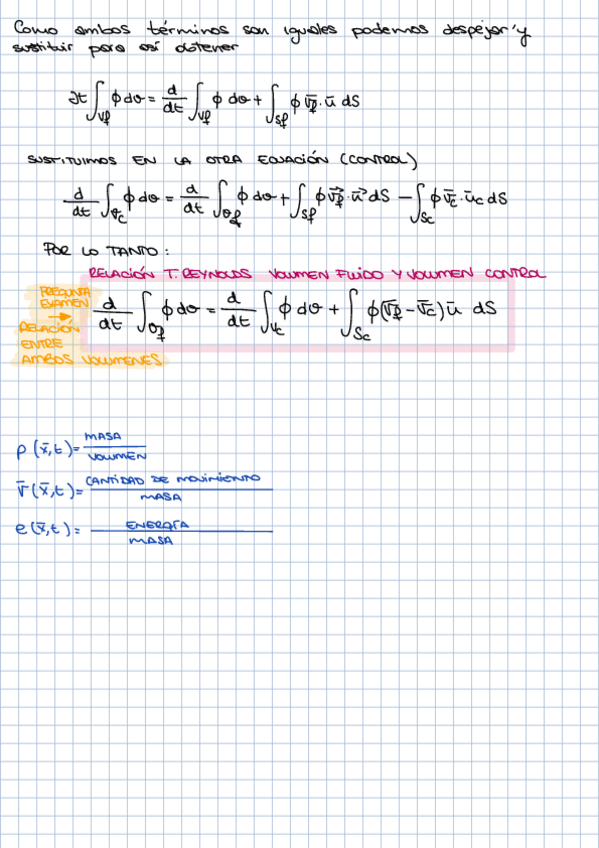 Como ambos términos son iguales podemos despejar y
sustituir para así obtener
∂t ∫_{Vf} ϕ dσ = d/dt ∫_{Vf} ϕ dσ + ∫_{Sf} ϕ v̄f · ū dS
SUSTITUIMOS EN LA OTRA ECUACIÓN (CONTROL)
d/dt ∫_{σc} ϕ dσ = d/dt ∫_{σf} ϕ dσ + ∫_{Sf} ϕ v⃗f · u⃗ dS − ∫_{Sc} ϕ v̄c · ūc dS
POR LO TANTO:
RELACIÓN T. REYNOLDS VOLUMEN FLUIDO Y VOLUMEN CONTROL
PREGUNTA
EXAMEN
→
RELACIÓN
ENTRE
AMBOS VOLUMENES
d/dt ∫_{σf} ϕ dσ = d/dt ∫_{Vc} ϕ dσ + ∫_{Sc} ϕ (v̄f − v̄c) ū dS
ρ (x̄,t) = MASA / VOLUMEN
v̄ (x̄,t) = CANTIDAD DE MOVIMIENTO / MASA
e (x̄,t) = ENERGÍA / MASA